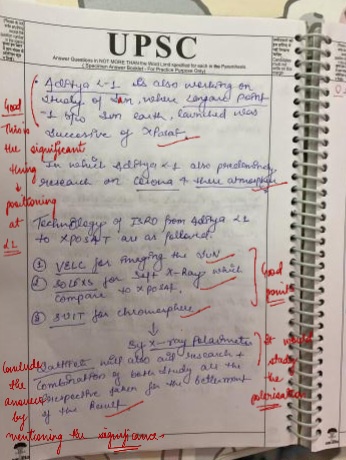 UPSC
Answer Questions in NOT MORE THAN the Word Limit specified for each in the Parenthesis
( Specimen Answer Booklet - For Practice Purpose Only )
Aditya L-1 is also working on
study of Sun, where
-1 b/w Sun earth, launched was
successive of XPosat
In which Aditya L1 also
research on Corona + there atmosphere
Technology of ISRO from Aditya L1
to XPOSAT are as followed.
① VELC for imaging the SUN
② SOLEXS for Soft X-Ray which
compare to xposat.
③ SUIT for chromosphere
↓
by X-ray Polarimeter
will also add research +
Combination of both study are the
perspective taken for the betterment
of the Result
Good
This is
the significant
thing
→
positioning
at
L2
Good
points
it would
study
the
polarisation
Conclude
the
answer
by
mentioning the significance.